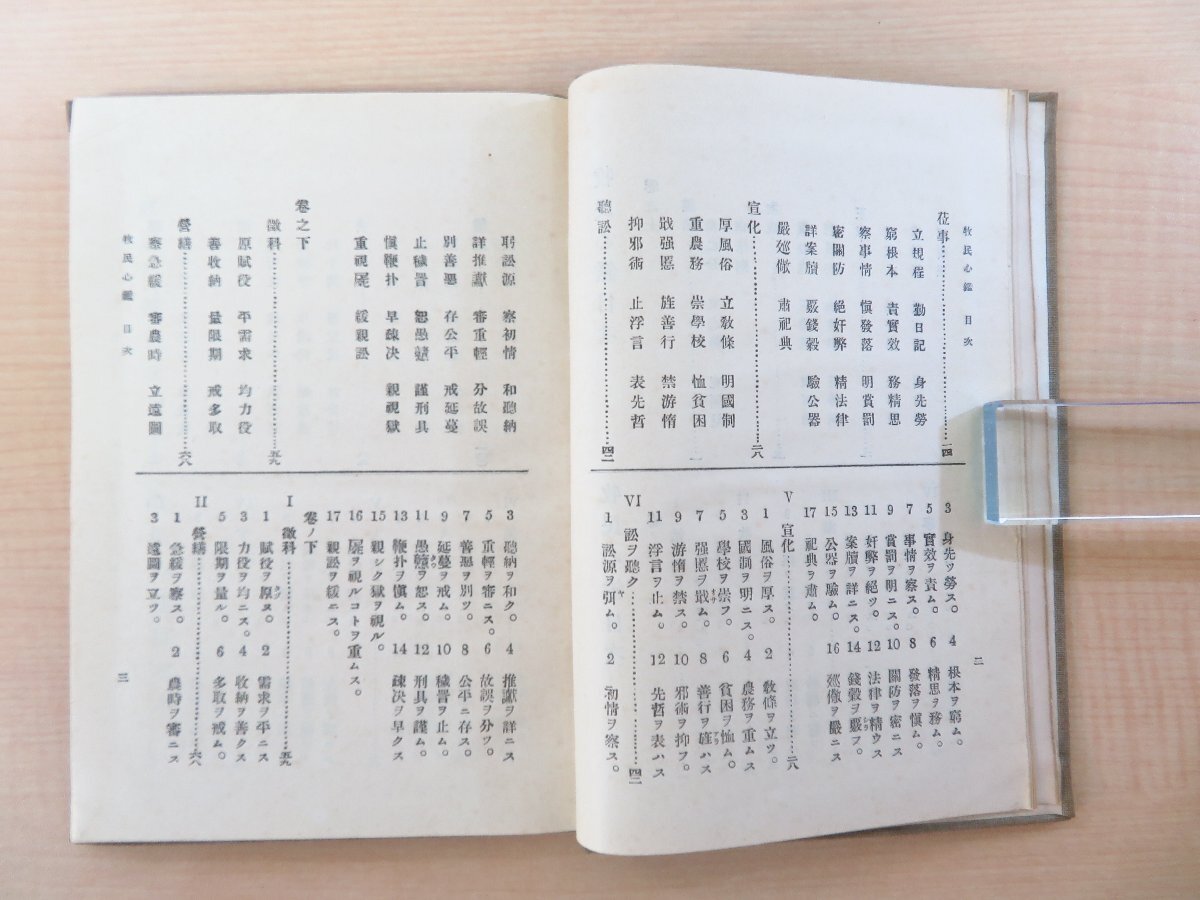 牧民心鑑 目次
莅事…………一四
立規程 勤日記 身先勞
窮根本 責實效 務精思
察事情 愼發落 明賞罰
密關防 絕奸弊 精法律
詳案牘 嚴錢穀 驗公器
嚴廵儆 肅祀典
宣化…………二八
厚風俗 立敎條 明國制
重農務 崇學校 恤貧困
戢强慝 旌善行 禁游惰
抑邪術 止浮言 表先哲
聽訟…………四二
3 身先ヲ勞ス。 4 根本ヲ窮ム。
5 實效ヲ責ム。 6 精思ヲ務ム。
7 事情ヲ察ス。 8 發落ヲ愼ム。
9 賞罰ヲ明ニス。 10 關防ヲ密ニス
11 奸弊ヲ絕ツ。 12 法律ヲ精ウス
13 案牘ヲ詳ニス。 14 錢穀ヲ嚴ヲ。
15 公器ヲ驗ム。 16 廵儆ヲ嚴ニス
17 祀典ヲ肅ム。
V 宣化…………二八
1 風俗ヲ厚ス。 2 敎條ヲ立ツ。
3 國制ヲ明ニス。 4 農務ヲ重ムス
5 學校ヲ崇ブ。 6 貧困ヲ恤ム。
7 强慝ヲ戢ム。 8 善行ヲ旌ハス
9 游惰ヲ禁ス。 10 邪術ヲ抑フ。
11 浮言ヲ止ム。 12 先哲ヲ表ハス
VI 訟ヲ聽ク…………四二
1 訟源ヲ弭ム。 2 初情ヲ察ス。
二
弭訟源 察初情 和聽納
詳推讞 審重輕 分故誤
別善惡 存公平 戒延蔓
止穢詈 恕愚戇 謹刑具
愼鞭扑 早疎决 親視獄
重視屍 緩親訟
卷之下
徵科…………五九
原賦役 平需求 均力役
善收納 量限期 戒多取
營繕…………六八
察急緩 審農時 立遠圖
牧民心鑑 目次
3 聽納ヲ和ク。 4 推讞ヲ詳ニス
5 重輕ヲ審ニス。 6 故誤ヲ分ツ。
7 善惡ヲ別ツ。 8 公平ニ存ス。
9 延蔓ヲ戒ム。 10 穢詈ヲ止ム。
11 愚戇ヲ恕ス。 12 刑具ヲ謹ム。
13 鞭扑ヲ愼ム。 14 疎决ヲ早クス
15 親シク獄ヲ視ル。
16 屍ヲ視ルコトヲ重ムス。
17 親訟ヲ緩ニス。
卷ノ下
I 徵科…………五九
1 賦役ヲ原ヌ。 2 需求ヲ平ニス
3 力役ヲ均ニス。 4 收納ヲ善クス
5 限期ヲ量ル。 6 多取ヲ戒ム。
II 營繕…………六八
1 急緩ヲ察ス。 2 農時ヲ審ニス
3 遠圖ヲ立ツ。
三